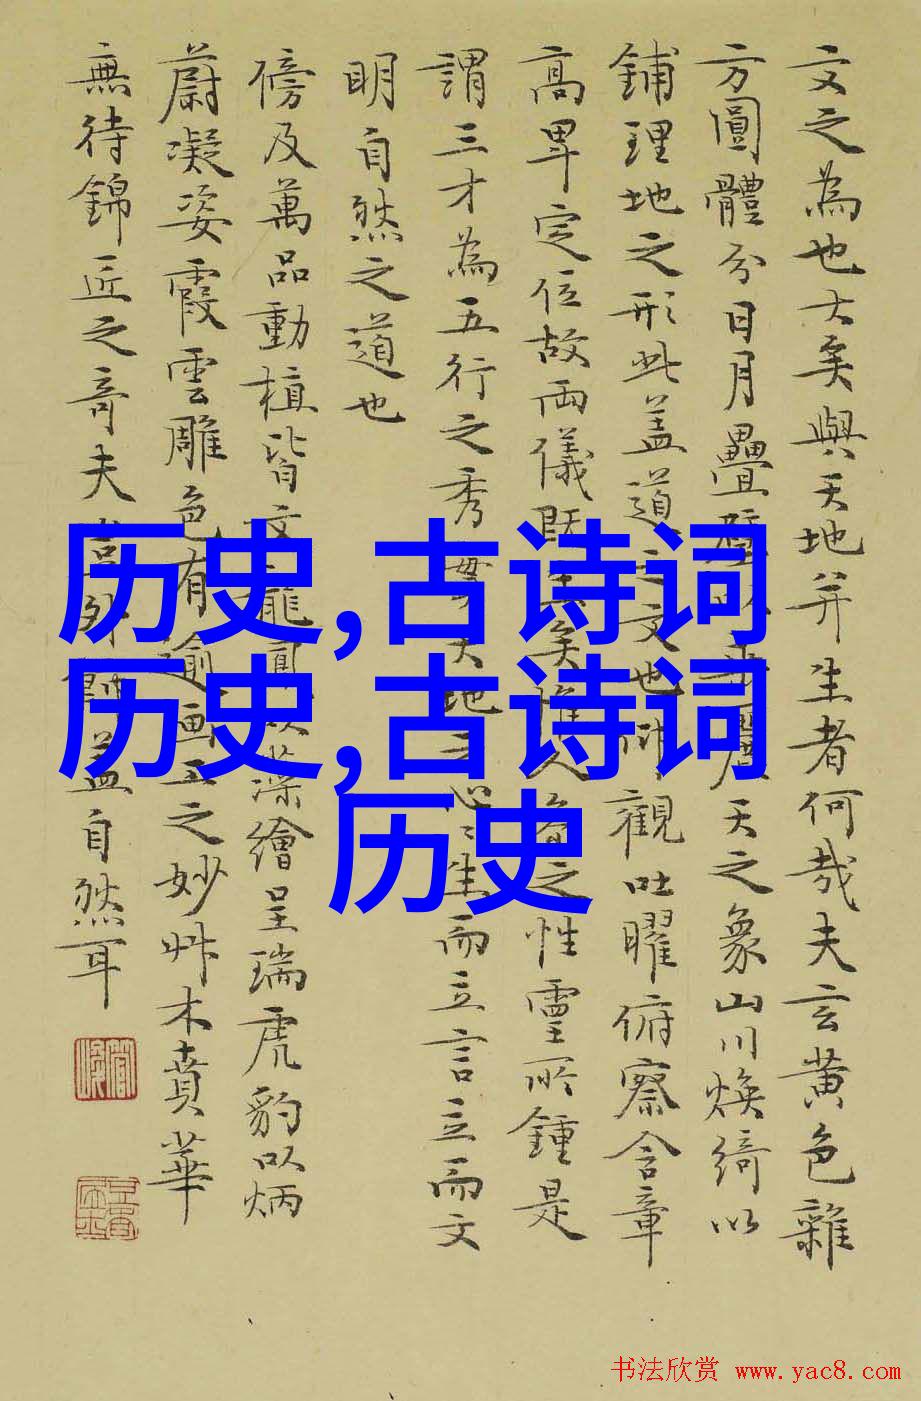 文之為也大矣與天地并生者何哉夫玄黄色雜
方圓體分日月疊璧以垂麗天之象山川煥綺以
鋪理地之形此盖道之文也仰觀吐曜俯察含章
高卑定位故兩儀既生矣惟人參之性靈所鍾是
謂三才為五行之秀實天地之心〻生而立言立而文
明自然之道也
傍及萬品動植皆文龍鳳以藻繪呈瑞虎豹以炳
蔚凝姿霞雲雕色有逾画工之妙艸木賁華
無待錦匠之奇夫豈外飾盖自然耳
历史,古诗词
历史,古诗词
历史
书法欣赏 www.yac8.com